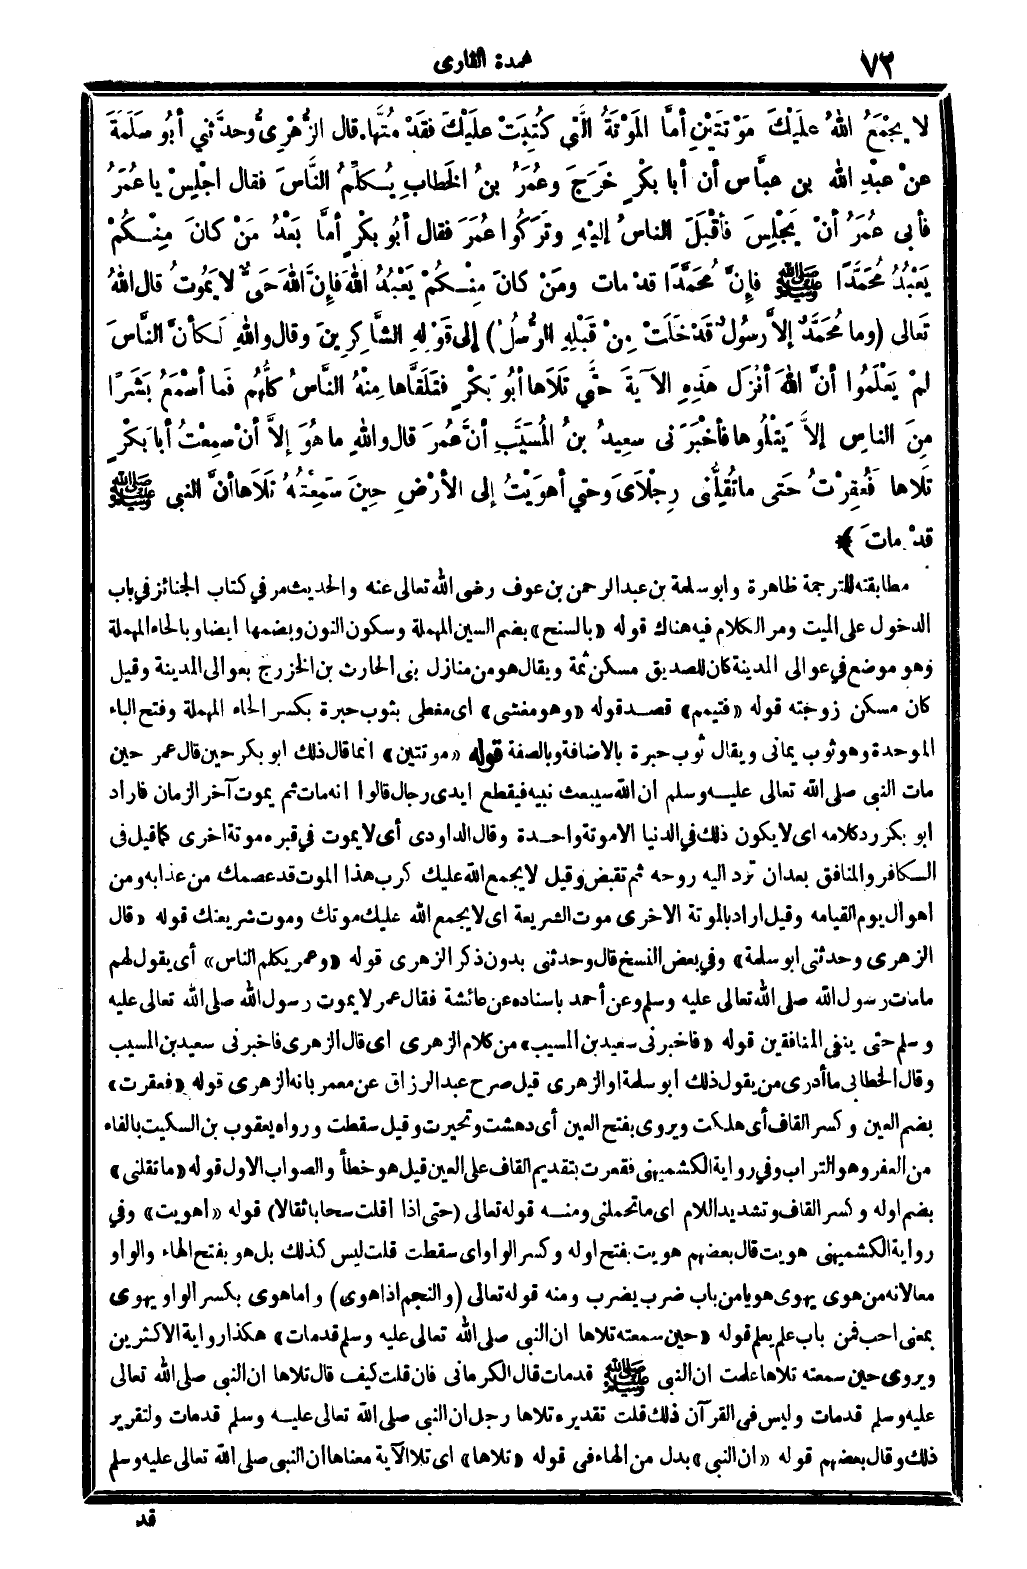 ٧٢
عمدة القارى
لا يَجْمَعُ اللهُ عليْكَ مَوْتَتَيْنِ أمَّا المَوْتَةُ الَّتِي كُتِبَتْ عليْكَ فقَدْ مُتَّها. قال الزُّهْرِىُّ وحدَّثني أبُو سلَمَةَ
عنْ عبْدِ الله بن عبَّاس أن أبا بكْرٍ خرَجَ وعُمَرُ بنُ الخَطابِ يُكلِّمُ النَّاسَ فقال اجْلِسْ ياعُمَرُ
فأبى عُمَرُ أنْ يَجْلِسَ فأقْبَلَ الناسُ إليْهِ وتَرَكُوا عُمَرَ فقال أبُو بكْرٍ أمَّا بَعْدُ مَنْ كانَ مِنْكُمْ
يَعْبُدُ مُحَمَّدًا ﷺ فإنَّ مُحَمَّدًا قدْ مات ومَنْ كانَ مِنْكُمْ يَعْبُدُ اللهَ فإنَّ اللهَ حَىٌّ لا يَمُوتُ قال اللهُ
تَعالى (وما مُحَمَّدٌ إلاَّ رسُولٌ قدْ خَلَتْ مِنْ قَبْلِهِ الرُّسُلُ) إلى قَوْلِهِ الشَّاكِرِينَ وقال واللهِ لَكأنَّ النَّاسَ
لمْ يَعْلَمُوا أنَّ اللهَ أنْزَلَ هَذِهِ الآيَةَ حتَّى تَلَاها أبُو بَكْرٍ فتَلَقَّاها مِنْهُ النَّاسُ كلُّهُم فَما أسْمَعُ بَشَرًا
مِنَ الناسِ إلاَّ يَتْلُوها فأخْبَرَنى سعِيدُ بنُ المُسَيَّبِ أنَّ عُمَرَ قال واللهِ ما هُوَ إلاَّ أنْ سمِعْتُ أبا بَكْرٍ
تَلاها فَعُقِرْتُ حَتى ماتُقِلُّنى رِجْلاىَ وحتى أهوَيْتُ إلى الأرْضِ حِينَ سَمِعْتُهُ تَلاها أنَّ النبى ﷺ
قدْ ماتَ ﴾
مطابقته للترجمة ظاهرة وابو سلمة بن عبد الرحمن بن عوف رضى الله تعالى عنه والحديث مر في كتاب الجنائز في باب
الدخول على الميت ومر الكلام فيه هناك قوله «بالسنح» بضم السين المهملة وسكون النون وبضمها ايضا وبالحاء المهملة
وهو موضع في عوالى المدينة كان للصديق مسكن ثمة ويقال هو من منازل بنى الحارث بن الخزرج بعوالى المدينة وقيل
كان مسكن زوجته قوله «فتيمم» قصد قوله «وهو مغشى» اى مغطى بثوب حبرة بكسر الحاء المهملة وفتح الباء
الموحدة وهو ثوب يمانى ويقال ثوب حبرة بالاضافة وبالصفة قوله «موتتين» انما قال ذلك ابو بكر حين قال عمر حين
مات النبى صلى الله تعالى عليه وسلم ان الله سيبعث نبيه فيقطع ايدى رجال قالوا انه مات ثم يموت آخر الزمان فاراد
ابو بكر رد كلامه اى لا يكون ذلك في الدنيا الاموتة واحدة وقال الداودى أى لا يموت في قبره موتة اخرى كما قيل فى
الكافر والمنافق بعد ان ترد اليه روحه ثم تقبض وقيل لا يجمع الله عليك كرب هذا الموت قد عصمك من عذابه ومن
اهوال يوم القيامه وقيل اراد بالموتة الاخرى موت الشريعة اى لا يجمع الله عليك موتك وموت شريعتك قوله «قال
الزهرى وحدثنى ابو سلمة» وفي بعض النسخ قال وحدثنى بدون ذكر الزهرى قوله «وعمر يكلم الناس» أى يقول لهم
مامات رسول الله صلى الله تعالى عليه وسلم وعن أحمد باسناده عن عائشة فقال عمر لا يموت رسول الله صلى الله تعالى عليه
وسلم حتى ينفى المنافقين قوله «فاخبرنى سعيد بن المسيب» من كلام الزهرى اى قال الزهرى فاخبرنى سعيد بن المسيب
وقال الخطابى ما أدرى من يقول ذلك ابو سلمة او الزهرى قيل صرح عبد الرزاق عن معمر بانه الزهرى قوله «فعقرت»
بضم العين وكسر القاف أى هلكت ويروى بفتح العين أى دهشت وتحيرت وقيل سقطت ورواه يعقوب بن السكيت بالفاء
من العفر وهو التراب وفي رواية الكشميهنى فقعرت بتقديم القاف على العين قيل هو خطأ والصواب الاول قوله «ماتقلنى»
بضم اوله وكسر القاف وتشديد اللام اى ماتحملنى ومنه قوله تعالى (حتى اذا اقلت سحابا ثقالا) قوله «اهويت» وفي
رواية الكشميهنى هويت قال بعضهم هويت بفتح اوله وكسر الواو اى سقطت قلت ليس كذلك بل هو بفتح الهاء والواو
معا لانه من هوى يهوى هويا من باب ضرب يضرب ومنه قوله تعالى (والنجم اذا هوى) واما هوى بكسر الواو يهوى
بمعنى احب فمن باب علم يعلم قوله «حين سمعته تلاها ان النبى صلى الله تعالى عليه وسلم قدمات» هكذا رواية الاكثرين
ويروى حين سمعته تلاها علمت ان النبى ﷺ قدمات قال الكرمانى فان قلت كيف قال تلاها ان النبى صلى الله تعالى
عليه وسلم قدمات وليس فى القرآن ذلك قلت تقديره تلاها رجل ان النبى صلى الله تعالى عليه وسلم قدمات ولتقرير
ذلك وقال بعضهم قوله «ان النبى» بدل من الهاء فى قوله «تلاها» اى تلا الآية معناها ان النبى صلى الله تعالى عليه وسلم
قد